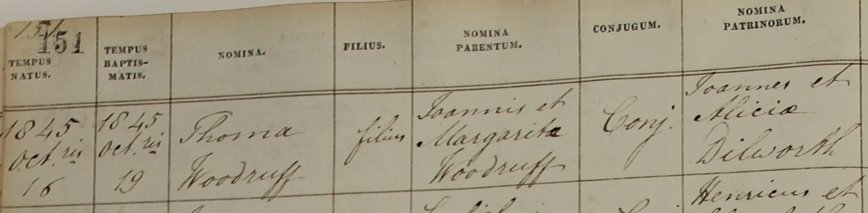 151
151
TEMPUS NATUS.
TEMPUS BAPTIS-MATIS.
NOMINA.
FILIUS.
NOMINA PARENTUM.
CONJUGUM.
NOMINA PATRINORUM.
1845 1845 Thoma filius Joannis et Conj. Joannes et
Oct.ris Oct.ris Woodruff Margarita Alicia
16 19 Woodruff Dilworth
Henricus et